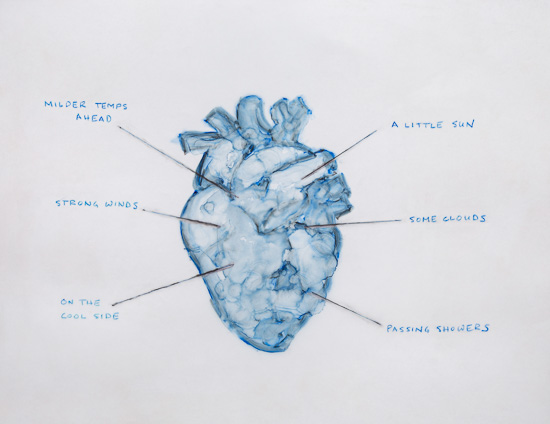 MILDER TEMPS
AHEAD
A LITTLE SUN
STRONG WINDS
SOME CLOUDS
ON THE
COOL SIDE
PASSING SHOWERS